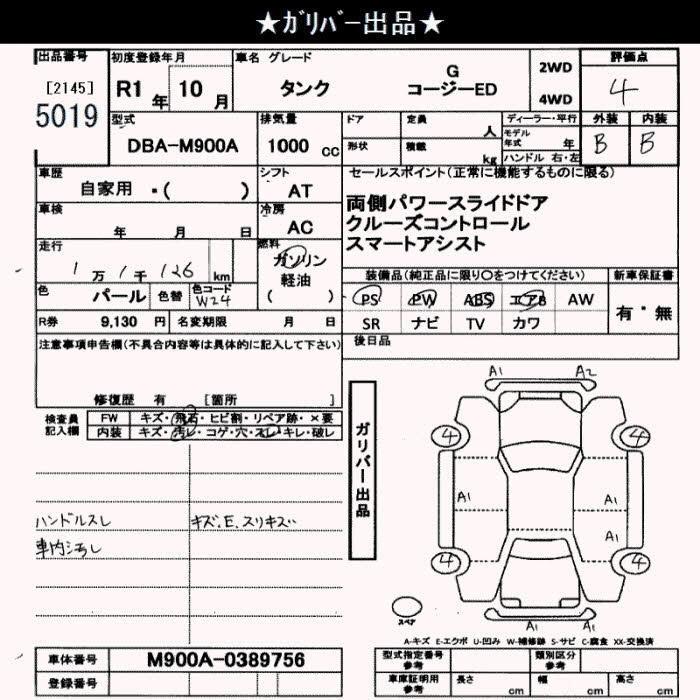 ★ｶﾞﾘﾊﾞｰ出品★
出品番号
[2145]
5019
初度登録年月
R1年 10月
車名 グレード
タンク G
コージーED
2WD
4WD
評価点
4
型式
DBA-M900A
排気量
1000 cc
ドア
定員 人
形状
積載 kg
ディーラー・平行
モデル年式 年
ハンドル 右・左
外装
B
内装
B
車歴
自家用 ・( )
シフト
AT
車検
年 月 日
冷房
AC
走行
1万1千126km
燃料
ガソリン
軽油
( )
色
パール
色替
色コード
W24
R券 9,130 円
名変期限 月 日
セールスポイント(正常に機能するものに限る)
両側パワースライドドア
クルーズコントロール
スマートアシスト
装備品(純正品に限り○をつけてください)
PS PW ABS エアB AW
SR ナビ TV カワ
新車保証書
有・無
注意事項申告欄(不具合内容等は具体的に記入して下さい)
修復歴 有 [箇所 ]
後日品
検査員
記入欄
FW キズ・飛石・ヒビ割・リペア跡・×要
内装 キズ・汚レ・コゲ・穴・スレ・キレ・破レ
ハンドルスレ
キズ.E.スリキズ
車内汚し
ガリバー出品
A1 A2
4 4
A1 A1
A1
4 4
A1 A1
スペア
A-キズ E-エクボ U-凹み W-補修跡 S-サビ C-腐食 XX-交換済
車体番号
M900A-0389756
登録番号
型式指定番号
参考
類別区分
参考
車庫証明用
参考
長さ cm
幅 cm
高さ cm